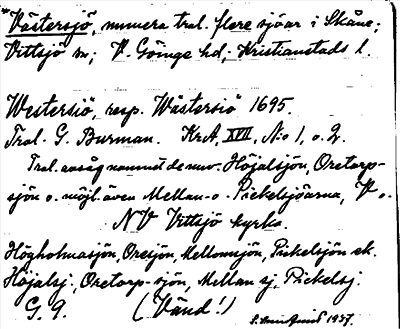 *Västersjö, numera trol. flere sjöar i Skåne;
Vittsjö sn; V. Göinge hd; Kristianstads l.
Westersiö, resp. Wästersiö 1695
Trol. G. Burman. KrA, XVII, No 1, o. 2.
Trol. avsåg namnet de nuv. Höjalsjön, Oretorp-
sjön o. möjl. även Mellan- o. Pickelsjöarna, V o.
NV Vittsjö kyrka.
Högholmasjön, Oresjön, Mellomsjön, Pickelsjön ek.
Höjalsj., Oretorp-sjön, Mellan sj. Pickelsj.
G. 9. (Vänd!)
1937.